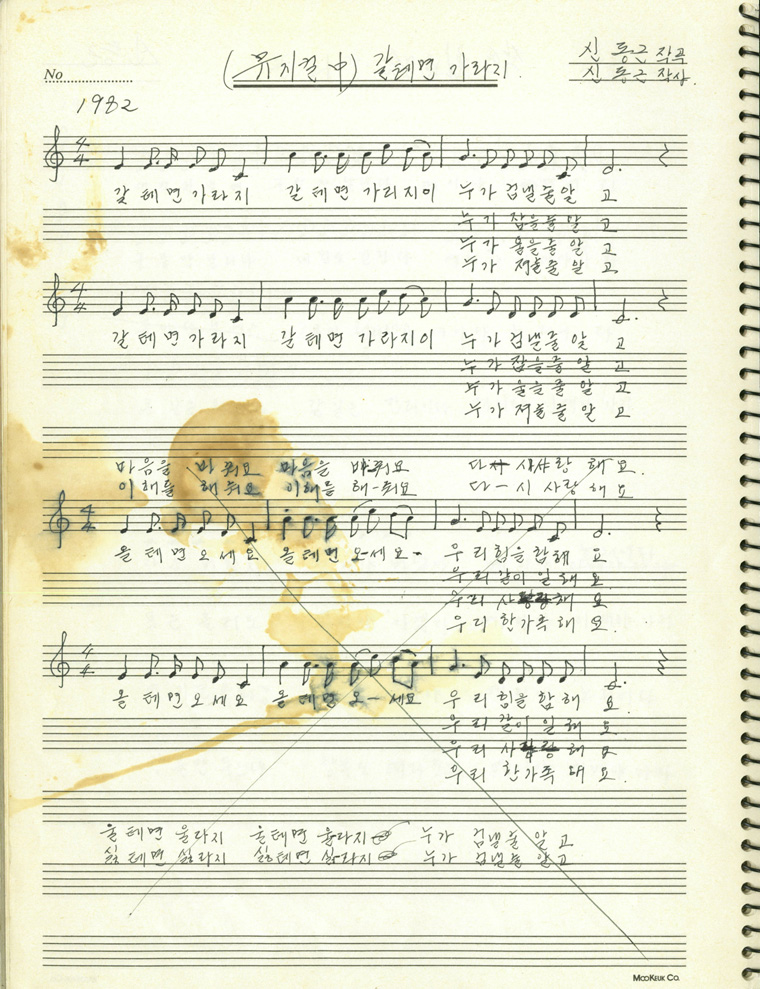 No
(뮤지컬 中) 갈테면 가라지.
신동근 작곡
신동근 작사.
1982
4 4
갈테면가라지 갈테면 가라지이 누가 겁낼줄알고
누가 잡을줄 알고
누가 울을줄 알고
누가 져줄줄 알고
4 4
갈테면가라지 갈테면 가라지이 누가 겁낼줄 알고
누가 잡을줄 알고
누가 울을줄 알고
누가 져줄줄 알고
마음을 바꿔요 마음을 바꿔요 다시 사랑 해요.
이해를 해줘요 이해를 해-줘요 다-시 사랑 해요
4 4
올테면오세요 올테면오-세요- 우리힘을합해요
우리같이일해요
우리 해요
우리 한가족해요.
4 4
올테면오세요 올테면 오-세요 우리힘을합해요.
우리 같이 일해요
우리 해요
우리 한가족 돼요.
울테면 울라지 울테면 울라지 누가 겁낼줄 알고
싫테면 싫라지 싫테면 싫라지 누가 겁낼줄 알고
MOOKEUK CO.